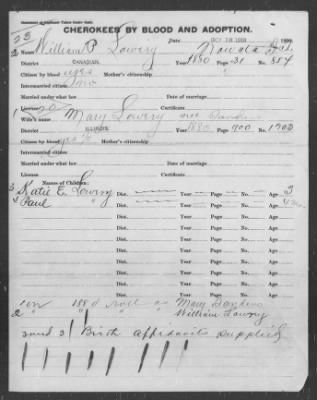 CHEROKEES BY BLOOD AND ADOPTION.
23
Date OCT 18 1900 1900.
William P Lowery Nowata I.T.
District CANADIAN. Year 1880 Page 31 No. 854
Citizen by blood yes Mother's citizenship
Intermarried citizen no
Married under what law Date of marriage
License Certificate
Wife's name Mary Lowry nee Sanders
District ILLINOIS Year 1880 Page 700 No. 1702
Citizen by blood Mother's citizenship
Intermarried citizen
Married under what law Date of marriage
License Certificate
Names of Children:
3 Katie E. Lowry Dist. Year Page No. Age 3
4 Paul " Dist. Year Page No. Age
Dist. Year Page No. Age
Dist. Year Page No. Age
Dist. Year Page No. Age
Dist. Year Page No. Age
Dist. Year Page No. Age
Dist. Year Page No. Age
Dist. Year Page No. Age
Dist. Year Page No. Age
on 1880 roll as Mary Sanders
2 " " William Lowry
Birth affidavits supplied